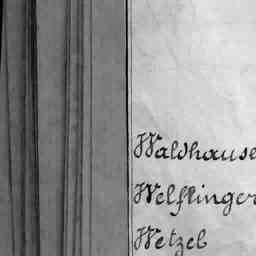 Waldhause
Welflinger
Wetzel